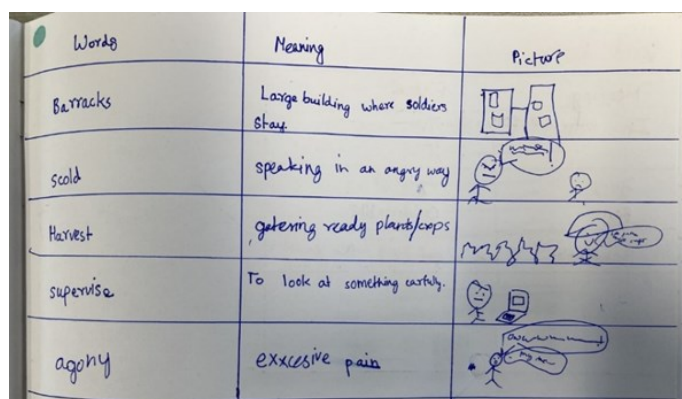 Words Meaning Picture
Barracks Large building where soldiers
stay.
scold speaking in an angry way
Harvest gatering ready plants/crops
supervise To look at something carfuly.
agony exxcesive pain